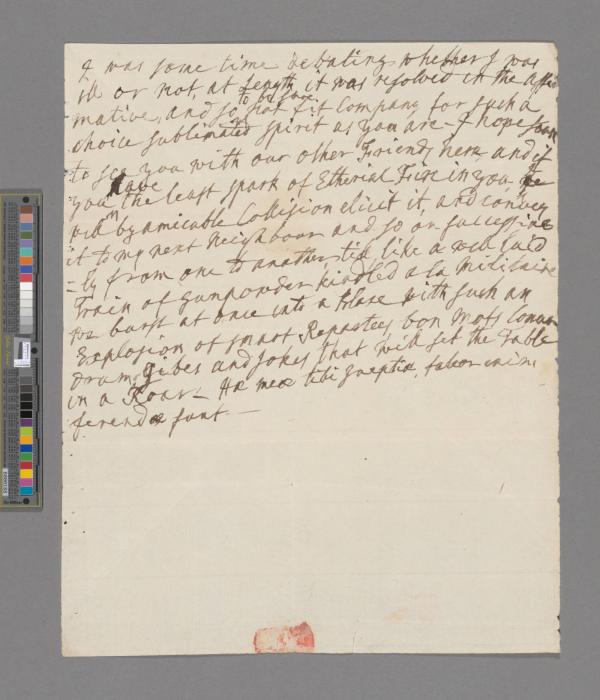 I was some time debating whether I was
ill or not, at length it was resolved in the affir
mative, and so to be sure not fit Company for such a
choice sublimated spirit as you are - I hope soon
to see you with our other Friends here, and if
you have the least spark of Etherial Fire in you, we
will by amicable Collision elicit it, and convey
it to my next Neighbour and so on successive
=ly from one to another till like a well laid
Train of Gunpowder kindled a la Militaire
we burst at once into a blaze with such an
Explosion of smart Repartees bon Mots Conun
drums, gibes and jokes that will set the Table
in a Roar - Hæ meæ tibi ineptiæ, fateor enim
ferendæ sunt -